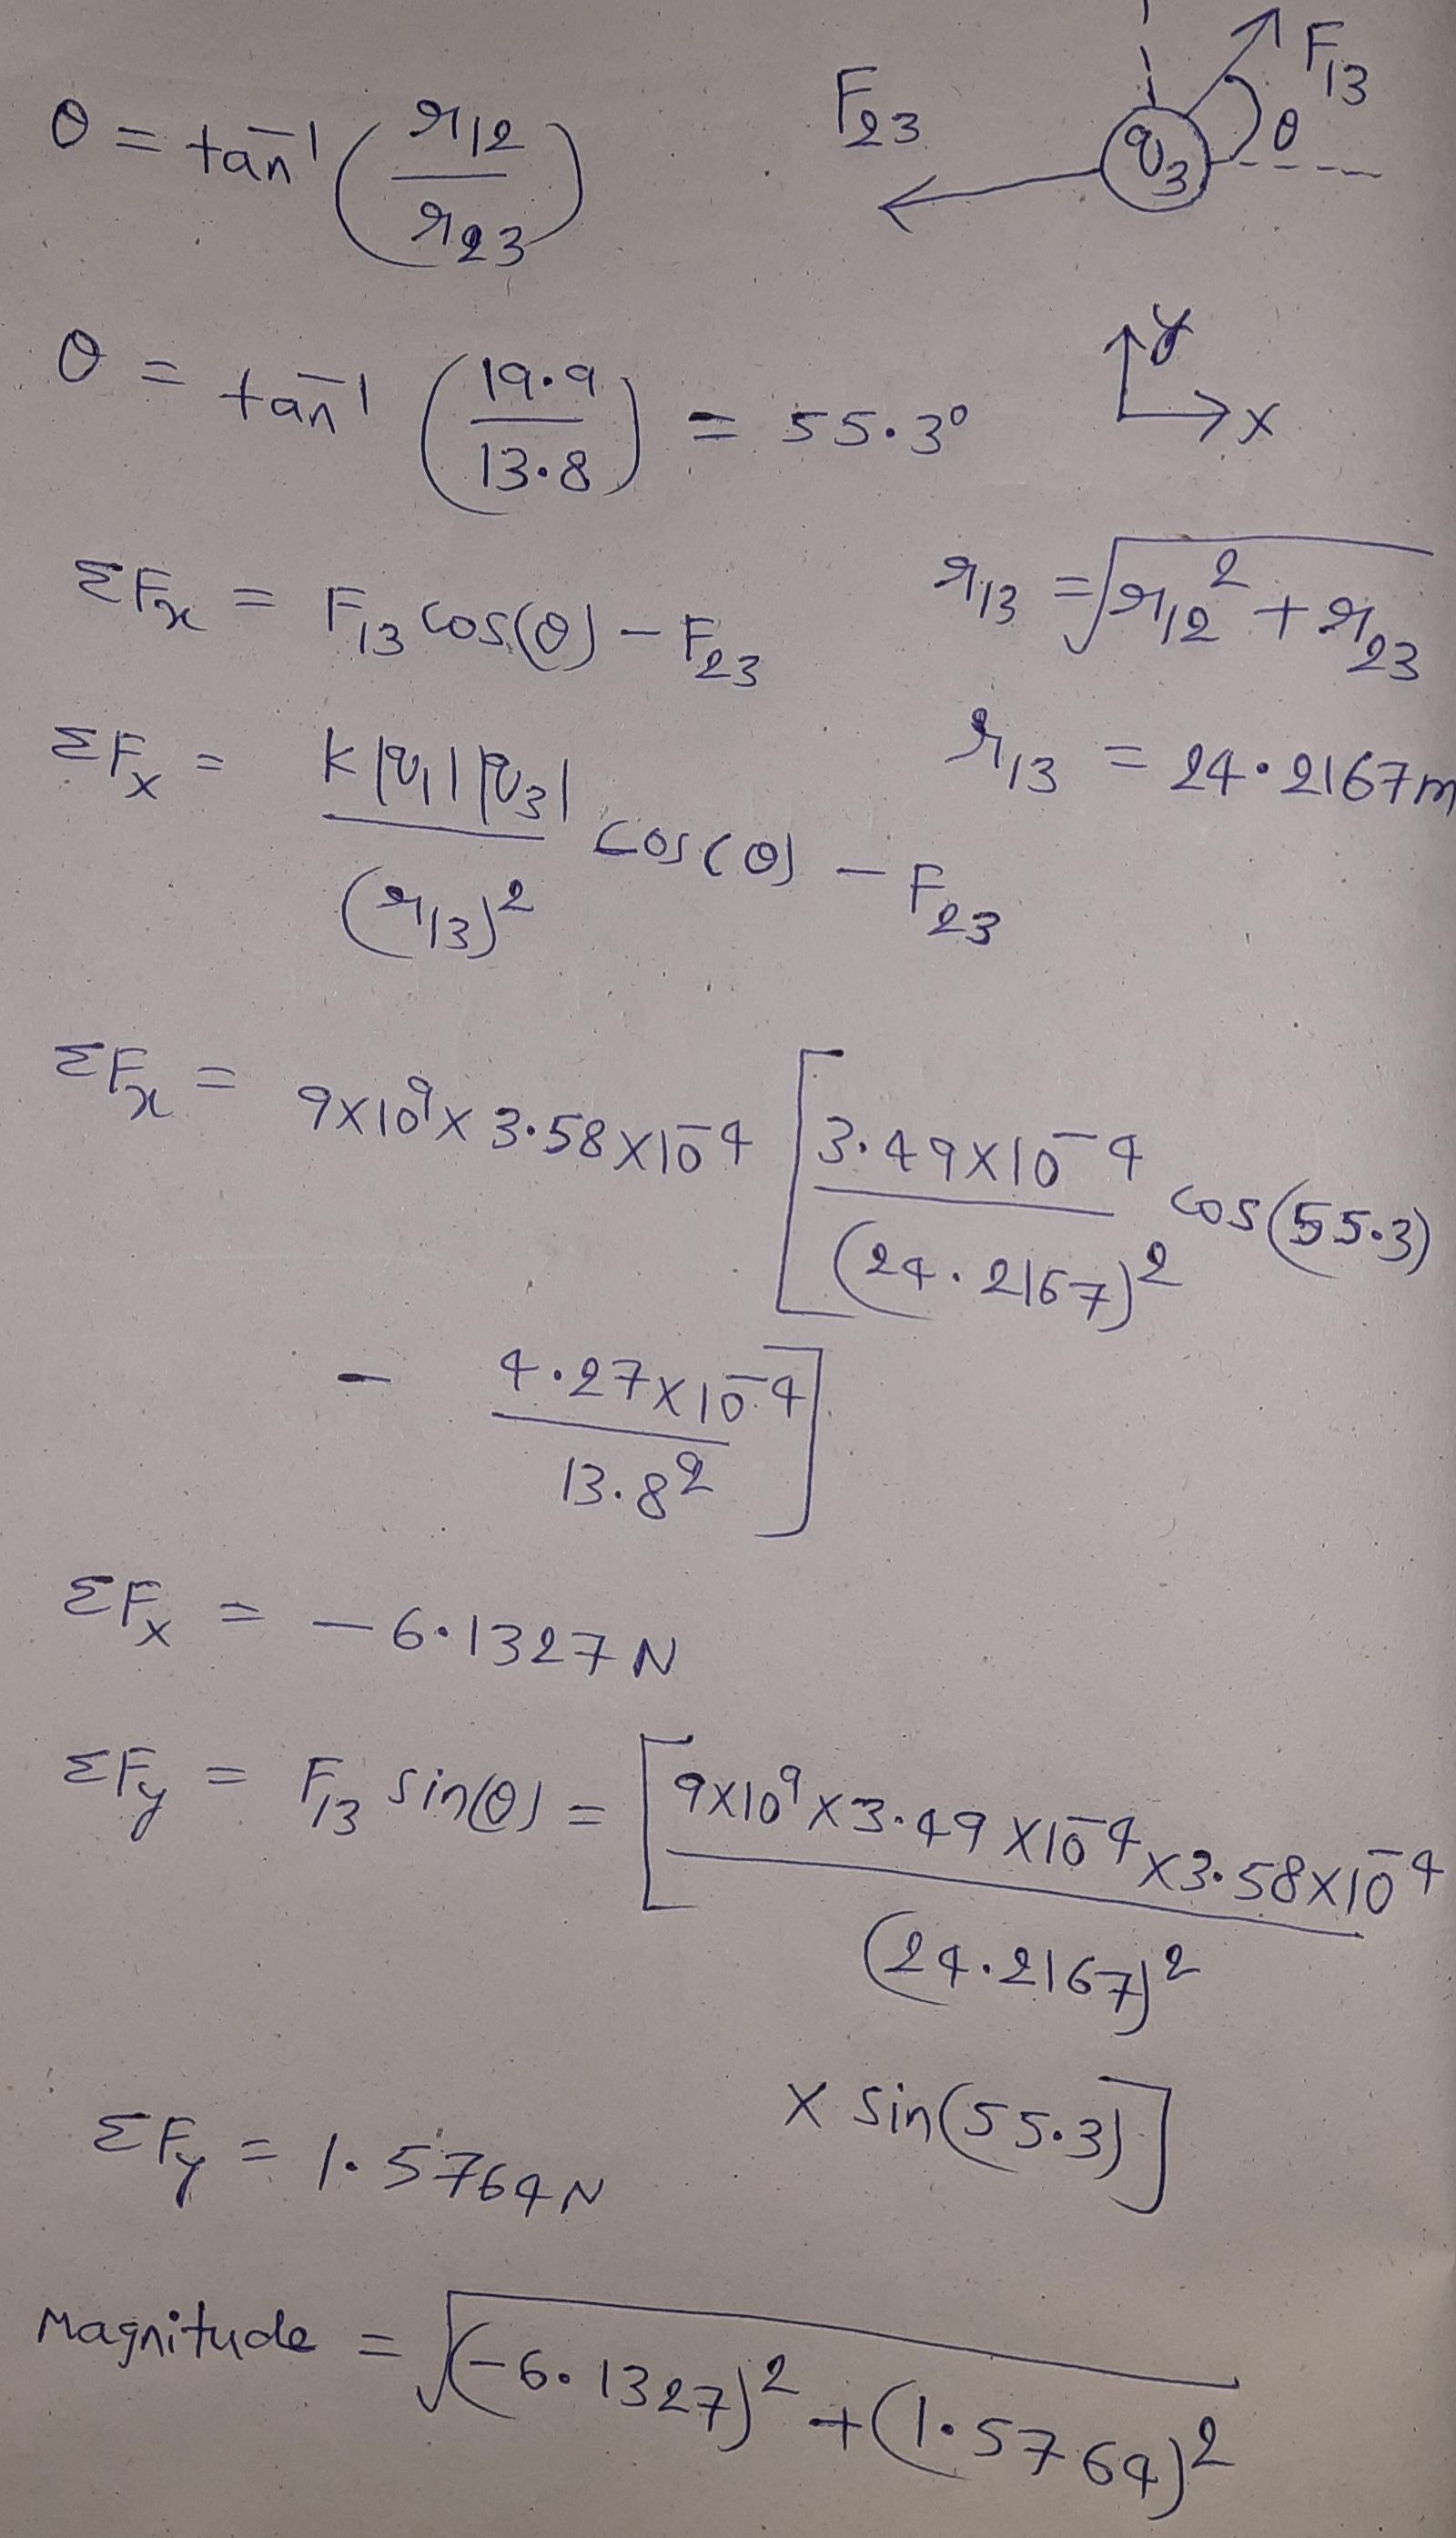 θ = tan⁻¹ (r₁₂ / r₂₃)
F₂₃ q₃ F₁₃ θ
θ = tan⁻¹ (19.9 / 13.8) = 55.3°
y
x
ΣFx = F₁₃ cos(θ) - F₂₃
r₁₃ = √(r₁₂² + r₂₃
r₁₃ = 24.2167m
ΣFx = K|q₁||q₃| / (r₁₃)² cos(θ) - F₂₃
ΣFx = 9×10⁹ × 3.58×10⁻⁴ [ 3.49×10⁻⁴ / (24.2167)² cos(55.3)
- 4.27×10⁻⁴ / 13.8² ]
ΣFx = -6.1327 N
ΣFy = F₁₃ sin(θ) = [ 9×10⁹ × 3.49×10⁻⁴ × 3.58×10⁻⁴ / (24.2167)²
× sin(55.3) ]
ΣFy = 1.5764 N
Magnitude = √((-6.1327)² + (1.5764)²)